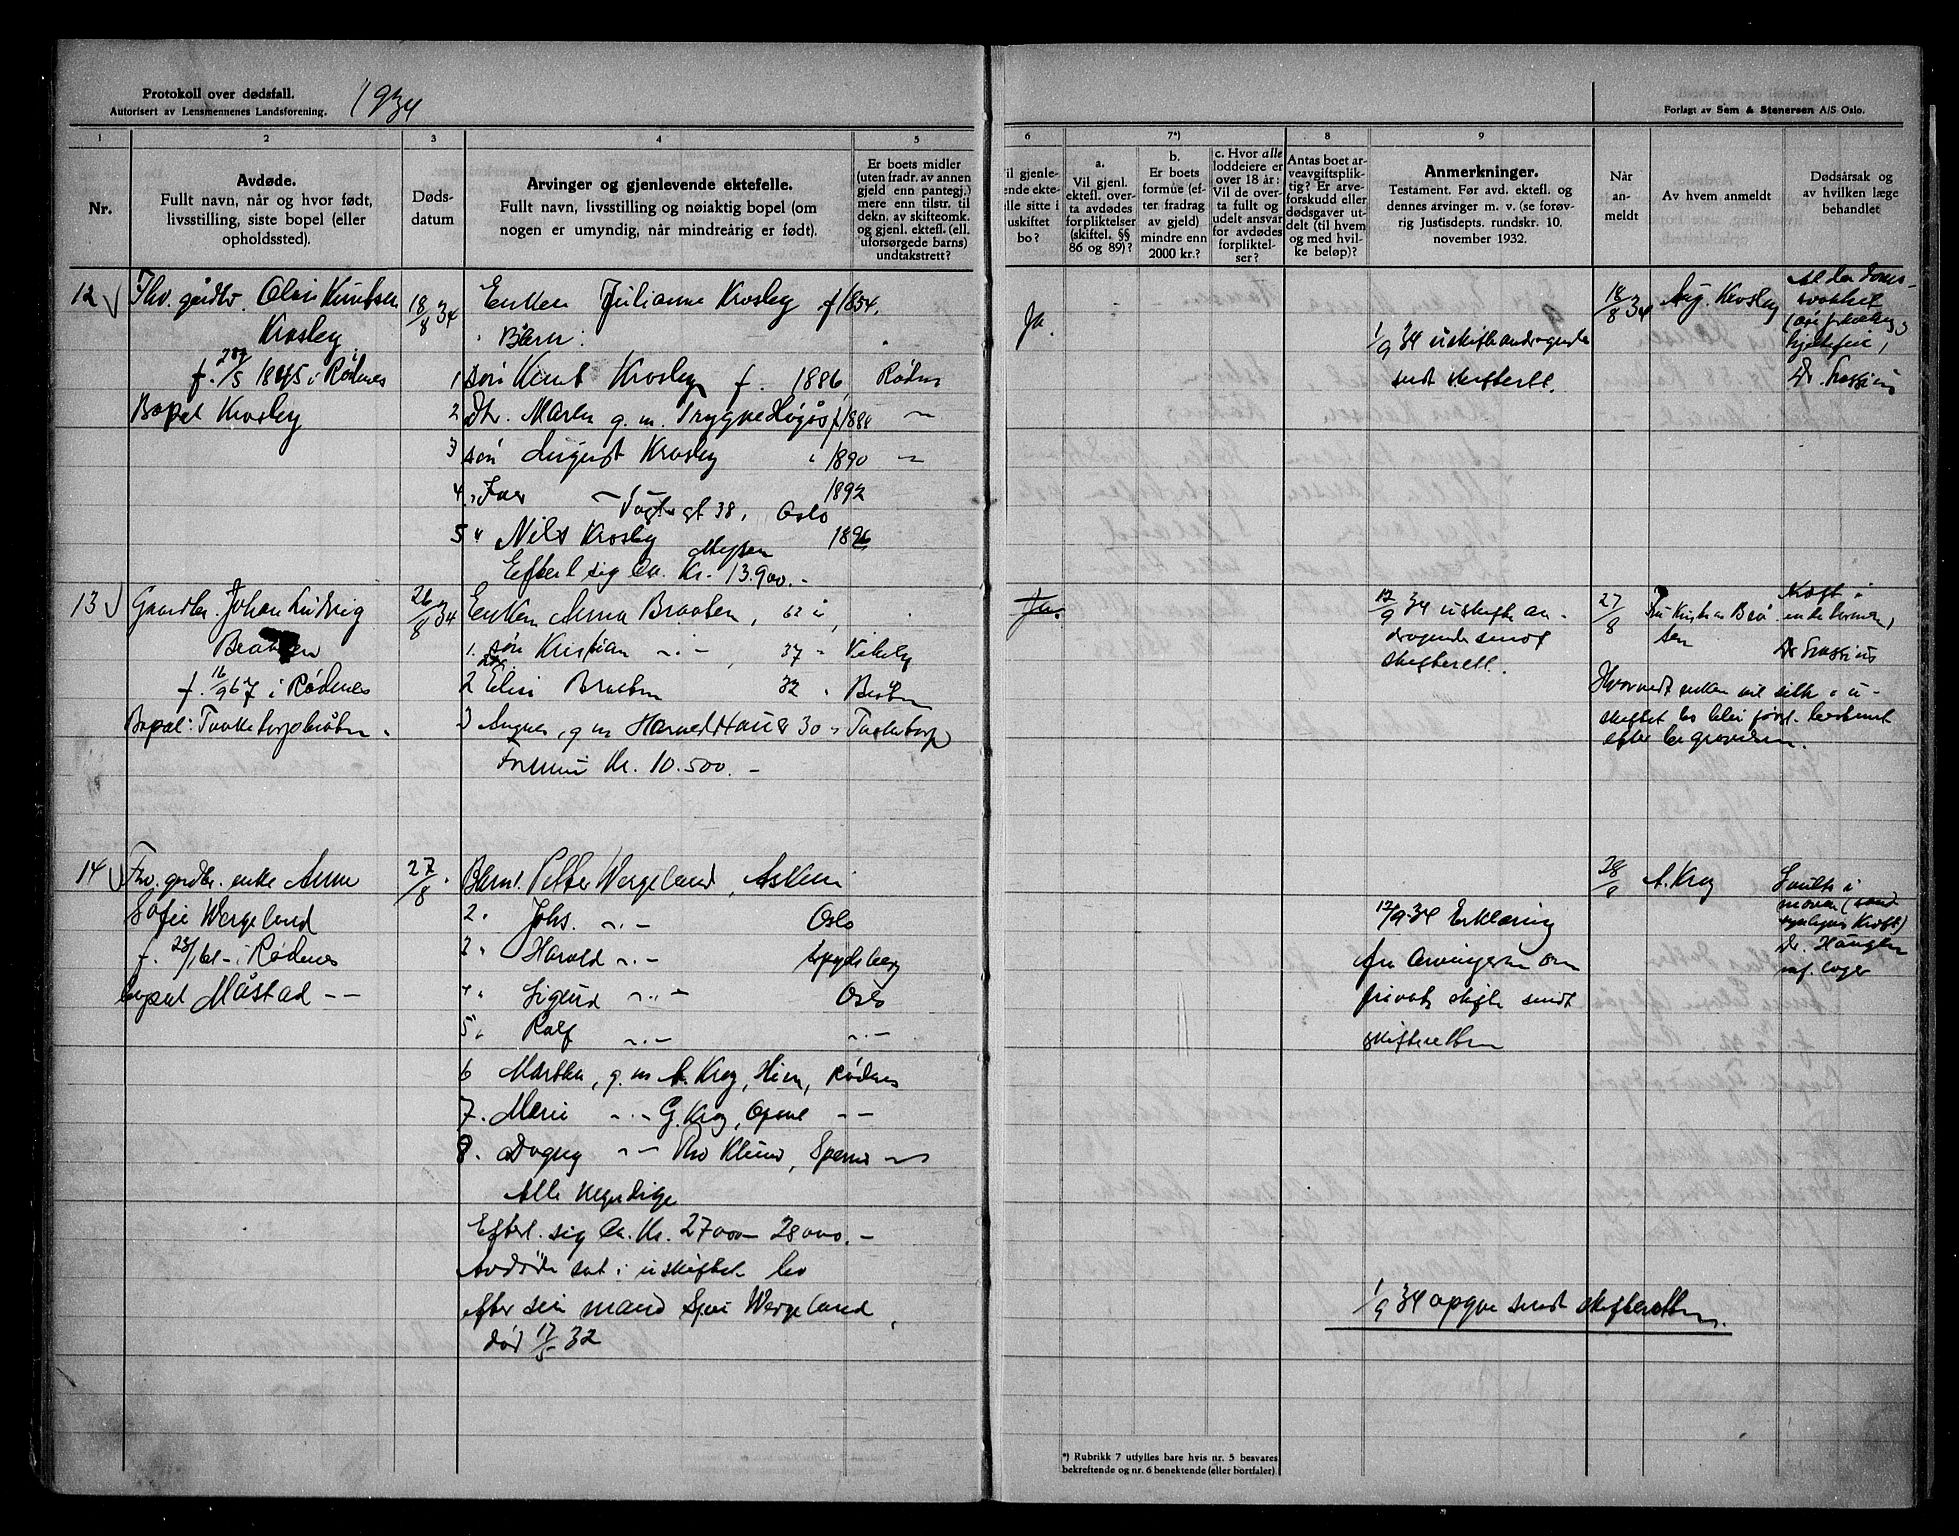 Protokoll over dødsfall.
Autorisert av Lensmennenes Landsforening.
1934
Forlagt av Sem & Stenersen A/S Oslo.
1
2
3
4
5
6
7*)
8
9
Nr.
Avdøde.
Fullt navn, når og hvor født,
livsstilling, siste bopel (eller
opholdssted).
Døds-
datum
Arvinger og gjenlevende ektefelle.
Fullt navn, livsstilling og nøiaktig bopel (om
nogen er umyndig, når mindreårig er født).
Er boets midler
(uten fradr. av annen
gjeld enn pantegj.)
mere enn tilstr. til
dekn. av skifteomk.
og gjenl. ektef. (ell.
uforsørgede barns)
undtakstrett?
Vil gjenle-
ende ekte-
lle sitte i
uskiftet
bo?
a.
Vil gjenl.
ektef. over-
ta avdødes
forpliktelser
(skiftel. §§
86 og 89)?
b.
Er boets
formue (ef-
ter fradrag
av gjeld)
mindre enn
2000 kr.?
c. Hvor alle
loddeiere er
over 18 år:
Vil de over-
ta fullt og
udelt ansvar
for avdødes
forpliktel-
ser?
Antas boet ar-
veavgiftsplik-
tig? Er arve-
forskudd eller
dødsgaver ut-
delt (til hvem
og med hvil-
ke beløp)?
Anmerkninger.
Testament. Før avd. ektef. og
dennes arvinger m. v. (se forøv-
rig Justisdepts. rundskr. 10.
november 1932.
Når
an-
meldt
Av hvem anmeldt
Dødsårsak og
av hvilken læge
behandlet
12 Fhv. gårdbr. Olai Knutsen
Krosby
f. 1845 i Rødenes
Bopel Krosby
18/8 34
Enken Julianne Krosby f 1854.
Barn:
1 søn Knut Krosby f. 1886, Rødnes
2 Dtr. Maren g. m. Trygve Høgås f 1888 "
3 søn August Krosby 1890 "
4 " Iver 1892
Vogts gt 38, Oslo
5 " Nils Krosby 1896
Mysen
Efterl sig Ca. Kr. 13.900.-
Ja.
1/9 34 uskifteandragende
sendt skifterett.
18/8 34 Aug. Krosby
hjertefeil,
13 Gaardbr. Johan Ludvig
Braaten
f. 16/9 67 i Rødenes
Bopel: Taaketorpbråten.
26/8 34
Enken Anna Braaten, 62 å,
1. søn Kristian " 37 " Vikeby
2 Elise Braaten 32 " Bråten
3 Agnes, g m Harald Haug 30 " Taaketorp
Formue Kr. 10.500.-
Ja.
12/9 34 uskifte an-
dragende sendt
skifterett.
27/8
Kræft i
Hvorvidt enken vil sitte i u-
skiftet bo blir først bestemt
efter begravelsen.
14 Fhv. grdbr. enke Anne
Sofie Wergeland
f. 23/1 61 i Rødenes
bopel Måstad
27/8.
Barn 1. Petter Wergeland, Askim
2 " Johs. " Oslo
3 " Harold " Spydeberg
4 " Sigurd " Oslo
5 " Rolf " "
6 Martha, g. m A. Krog, Hien, Rødnes
7. Marie " G. Krog, Opsal "
8. Dagny "
Alle myndige
Efterl. sig Ca. Kr. 27000 - 28000.-
Avdøde sat i uskiftet bo
efter sin mand Wergeland,
død 17/5 32
12/9 34 Erklæring
fra Arvingerne om
privat skifte sendt
skifteretten
28/8 A. Krog
Svulst i
maven
kræft)
1/9 34 opgve sendt skifteretten.
*) Rubrikk 7 utfylles bare hvis nr. 5 besvares
bekreftende og nr. 6 benektende (eller bortfaler)